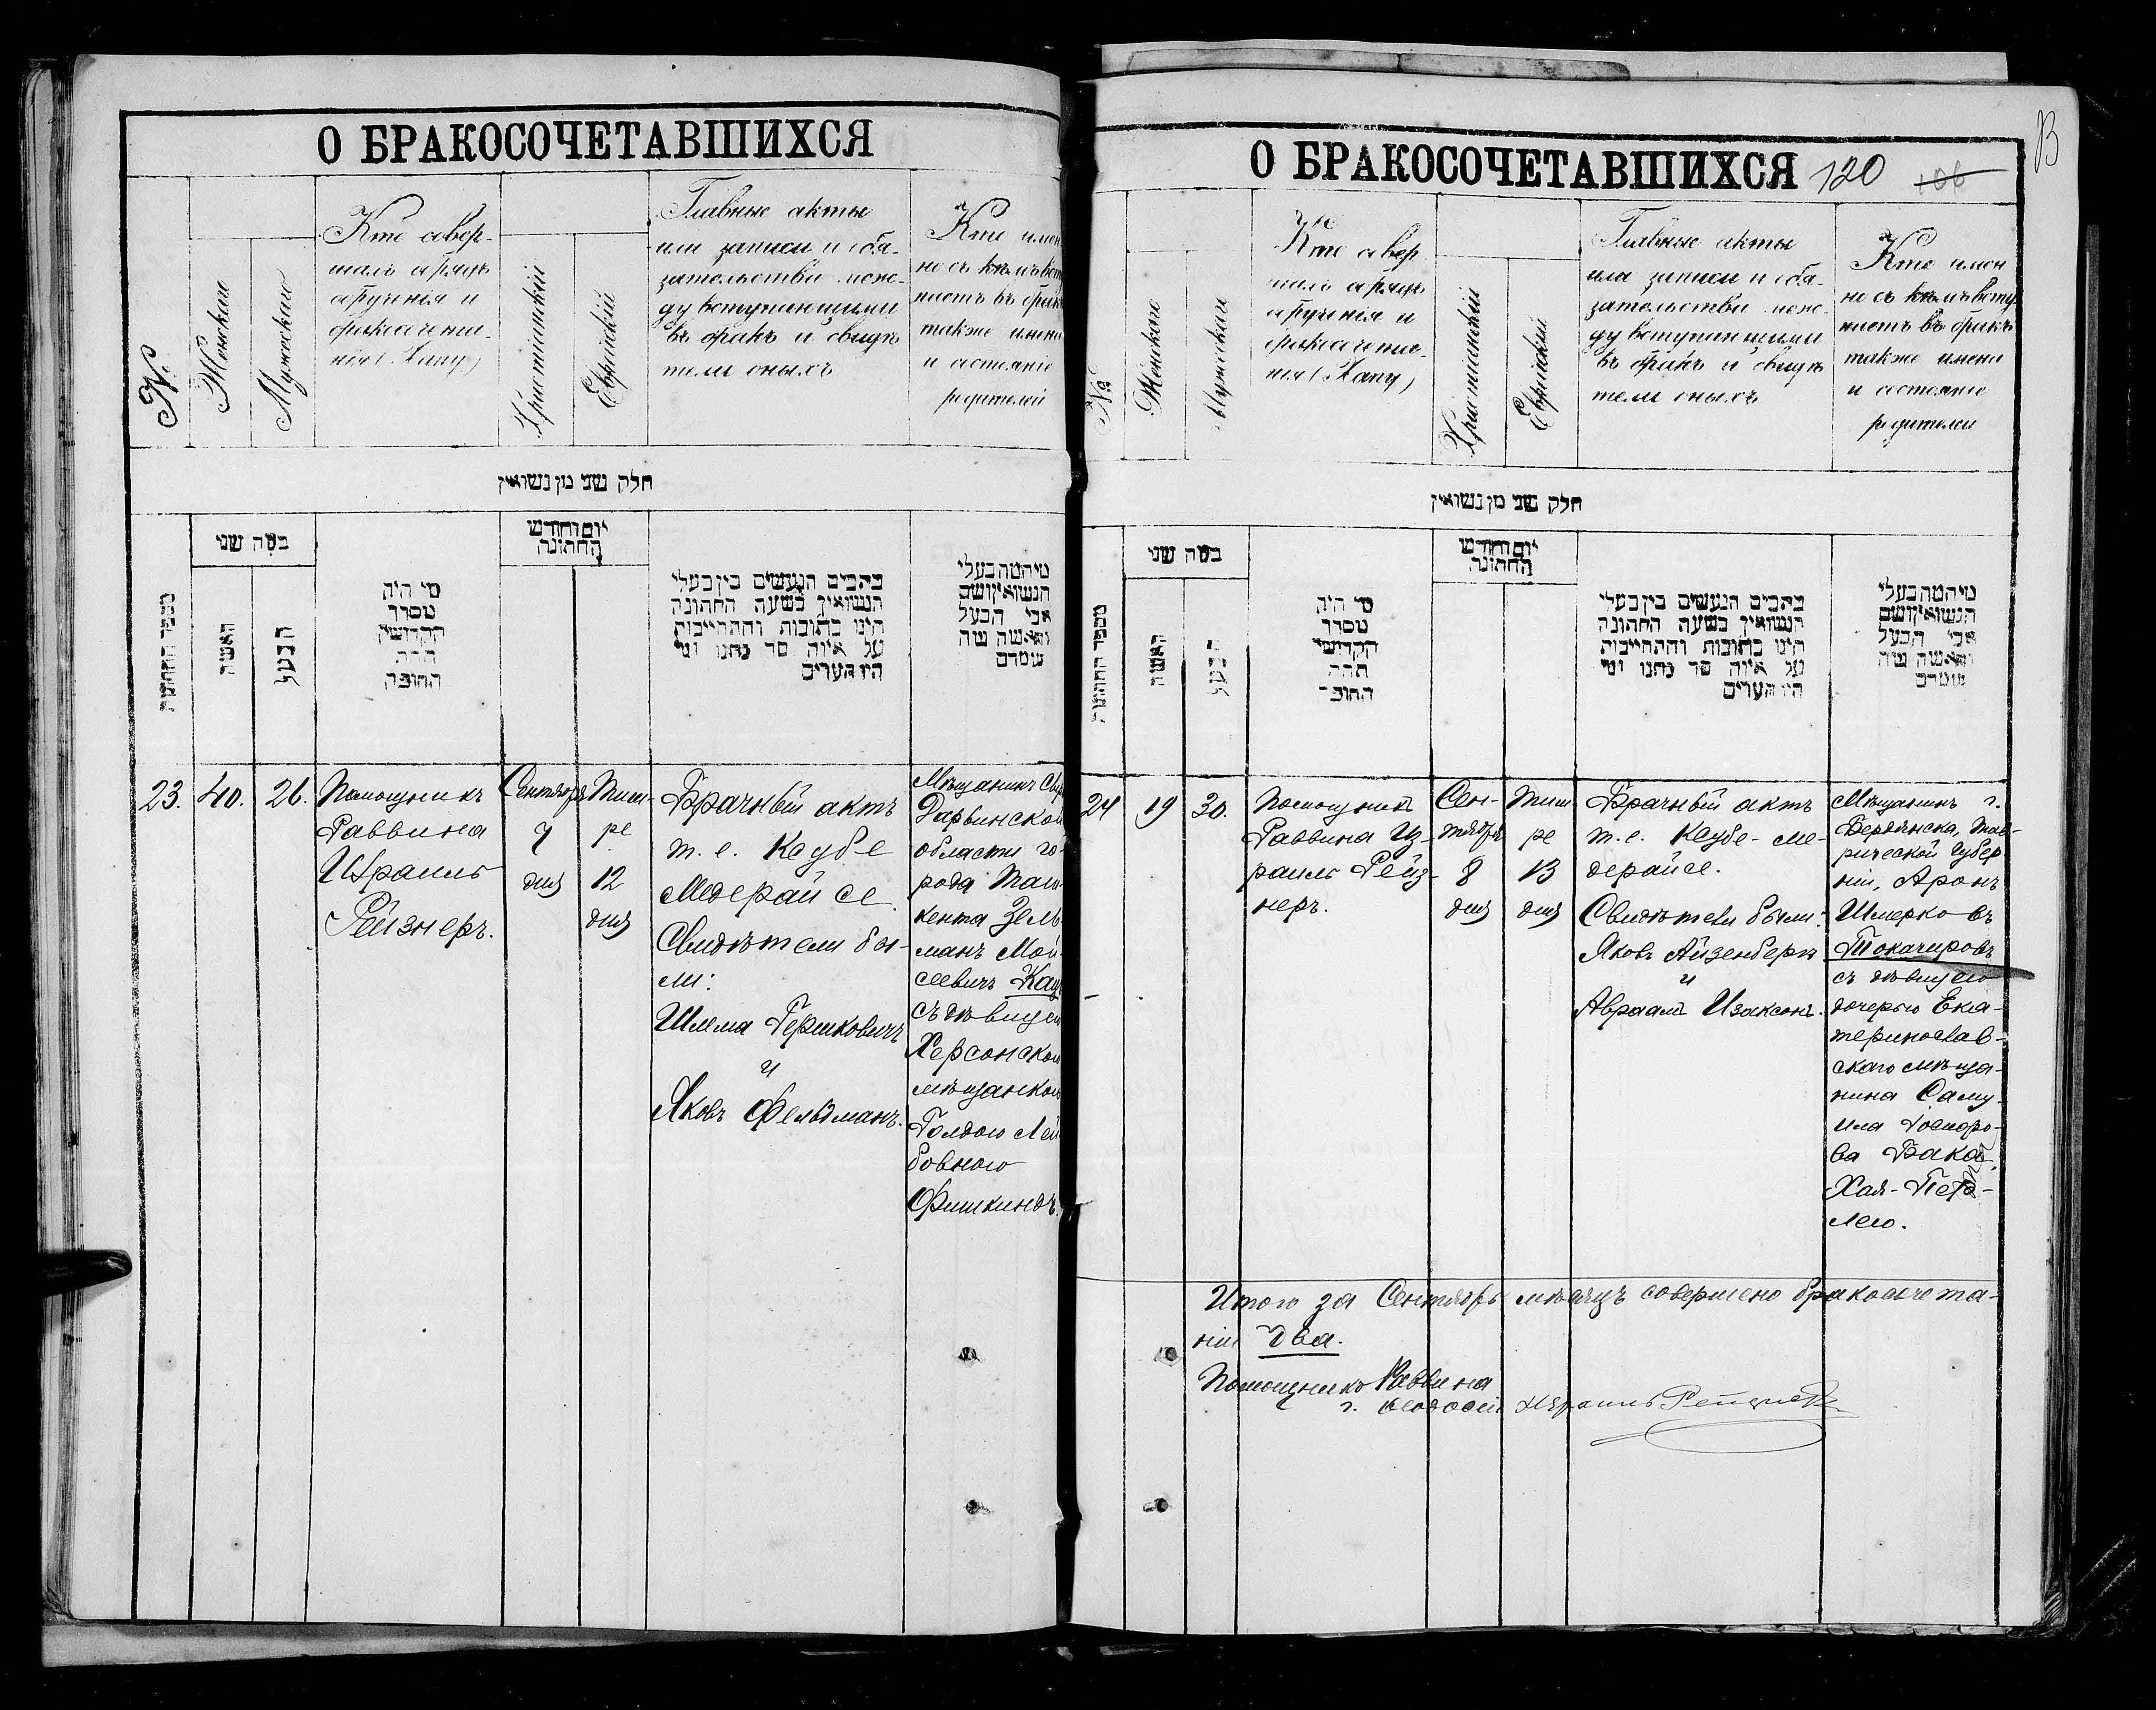 О БРАКОСОЧЕТАВШИХСЯ
№
Женская
Мужеская
Кто совер-
шалъ обрядъ
обрученія и
бракосочета-
нія (Хапу)
Христіанскій
Еврейскій
Главные акты
или записи и обя-
зательства меж-
ду вступающими
въ бракъ и свидѣ
тели оныхъ
Кто имен
но съ кѣмъ всту
паетъ въ бракъ
также имена
и состояніе
родителей
חלק שני מן נשואין
מספר החתונה
במה שני
האשה
הבעל
מי היה
מסדר
הקדושין
תחת
החופה
יום וחודש
החתונה
מהכים הנעשים בין בעלי
הנשואין בשעה החתונה
היינו כתובות וההתחייבות
על איזה סך נתנו ומי
היו העדים
מיהמה בעלי
הנשואין ושם
אבי הבעל
והאשה מה
23.
40.
26.
Помощникъ
Раввина
Израиль
Рейзнеръ.
Сентября
7
дня
Тиш-
ре
12
дня
Брачный актъ
т. е. Ксубе
Медерайсе
Свидѣтели бы-
ли:
Шлема Гершковичъ
и
Яковъ Фельдманъ.
Мѣщанинъ Сыръ
Дарьинской
области го-
рода Таш-
кента Зель-
манъ Мой-
сеевичъ Кац
съ дѣвицею
Херсонской
мѣщанкой
Голдою Лей-
бовною
Фишкиндъ.
О БРАКОСОЧЕТАВШИХСЯ
120
106
В
№
Женская
Мужеская
Кто совер
шалъ обрядъ
обрученія и
бракосочета-
нія (Хапу)
Христіанскій
Еврейскій
Главные акты
или записи и обя-
зательства меж-
ду вступающими
въ бракъ и свидѣ
тели оныхъ
Кто имен
но съ кѣмъ всту
паетъ въ бракъ
также имена
и состояніе
родителей
חלק שני מן נשואין
מספר החתונה
במה שני
האשה
הבעל
מי היה
מסדר
הקדושי
תחת
החופ
יום וחודש
החתונה
מהכים הנעשים בין בעלי
הנשואין בשעה החתונה
היינו כתובות וההתחייבות
על איזה סך נתנו ומי
היו העדים
מיהמה בעלי
הנשואין ושם
אבי הבעל
והאשה מה
24
19
30.
Помощникъ
Раввина Из-
раиль Рейз-
неръ.
Сен-
тября
8
дня
Тиш
ре
13
дня
Брачный актъ
т. е. Ксубе-ме-
дерайсе.
Свидѣтели были:
Яковъ Айзенбергъ
и
Авраамъ Изаксонъ.
Мѣщанинъ г.
Бердянска, Тав-
рической Губер
ніи, Аронъ
Шмерковъ
Токачировъ
съ дѣвицею
дочерью Ека-
теринослав-
скаго мѣща-
нина Саму-
ила
ва Бака,
Хая-Пер-
лею.
Итого за Сентябрь мѣсяцъ совершено бракосочета-
ній два.
Помощникъ Раввина
г. Ѳеодосіи Израиль Рейзнеръ